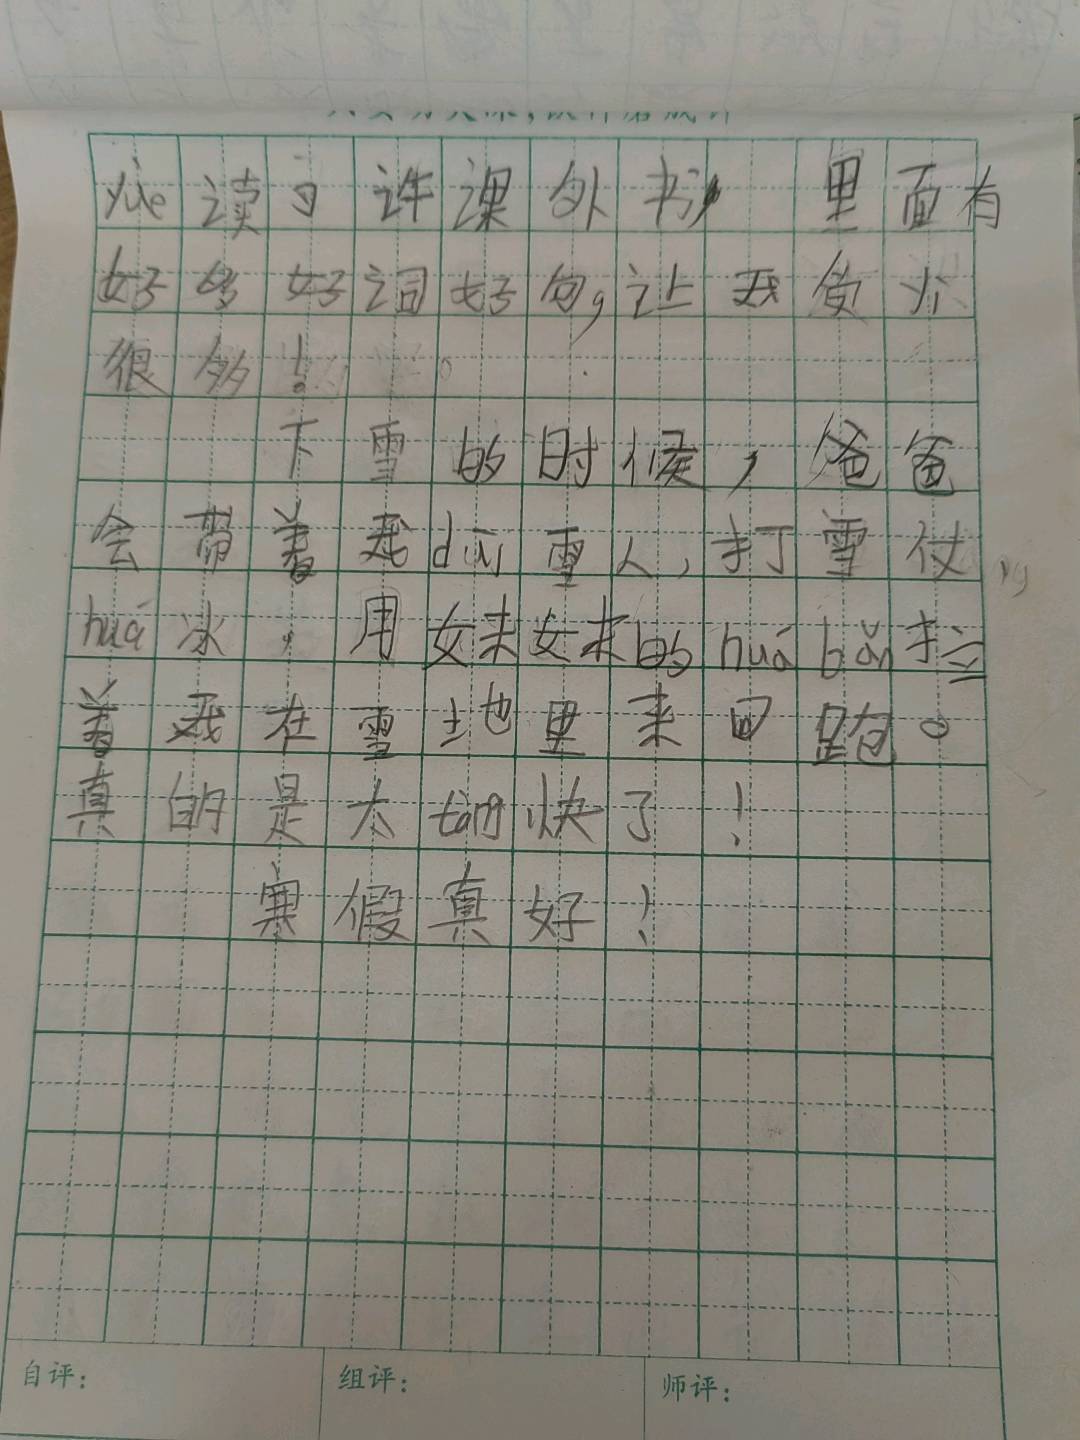 yùe读了许课外书，里面有
好多好词好句，让我受益
很多！
下雪的时候，爸爸
会带着我duī雪人，打雪仗
huá冰，用妹妹的huá bǎn拉
着我在雪地里来回跑。
真的是太tòng快了！
寒假真好！
自评：
组评：
师评：